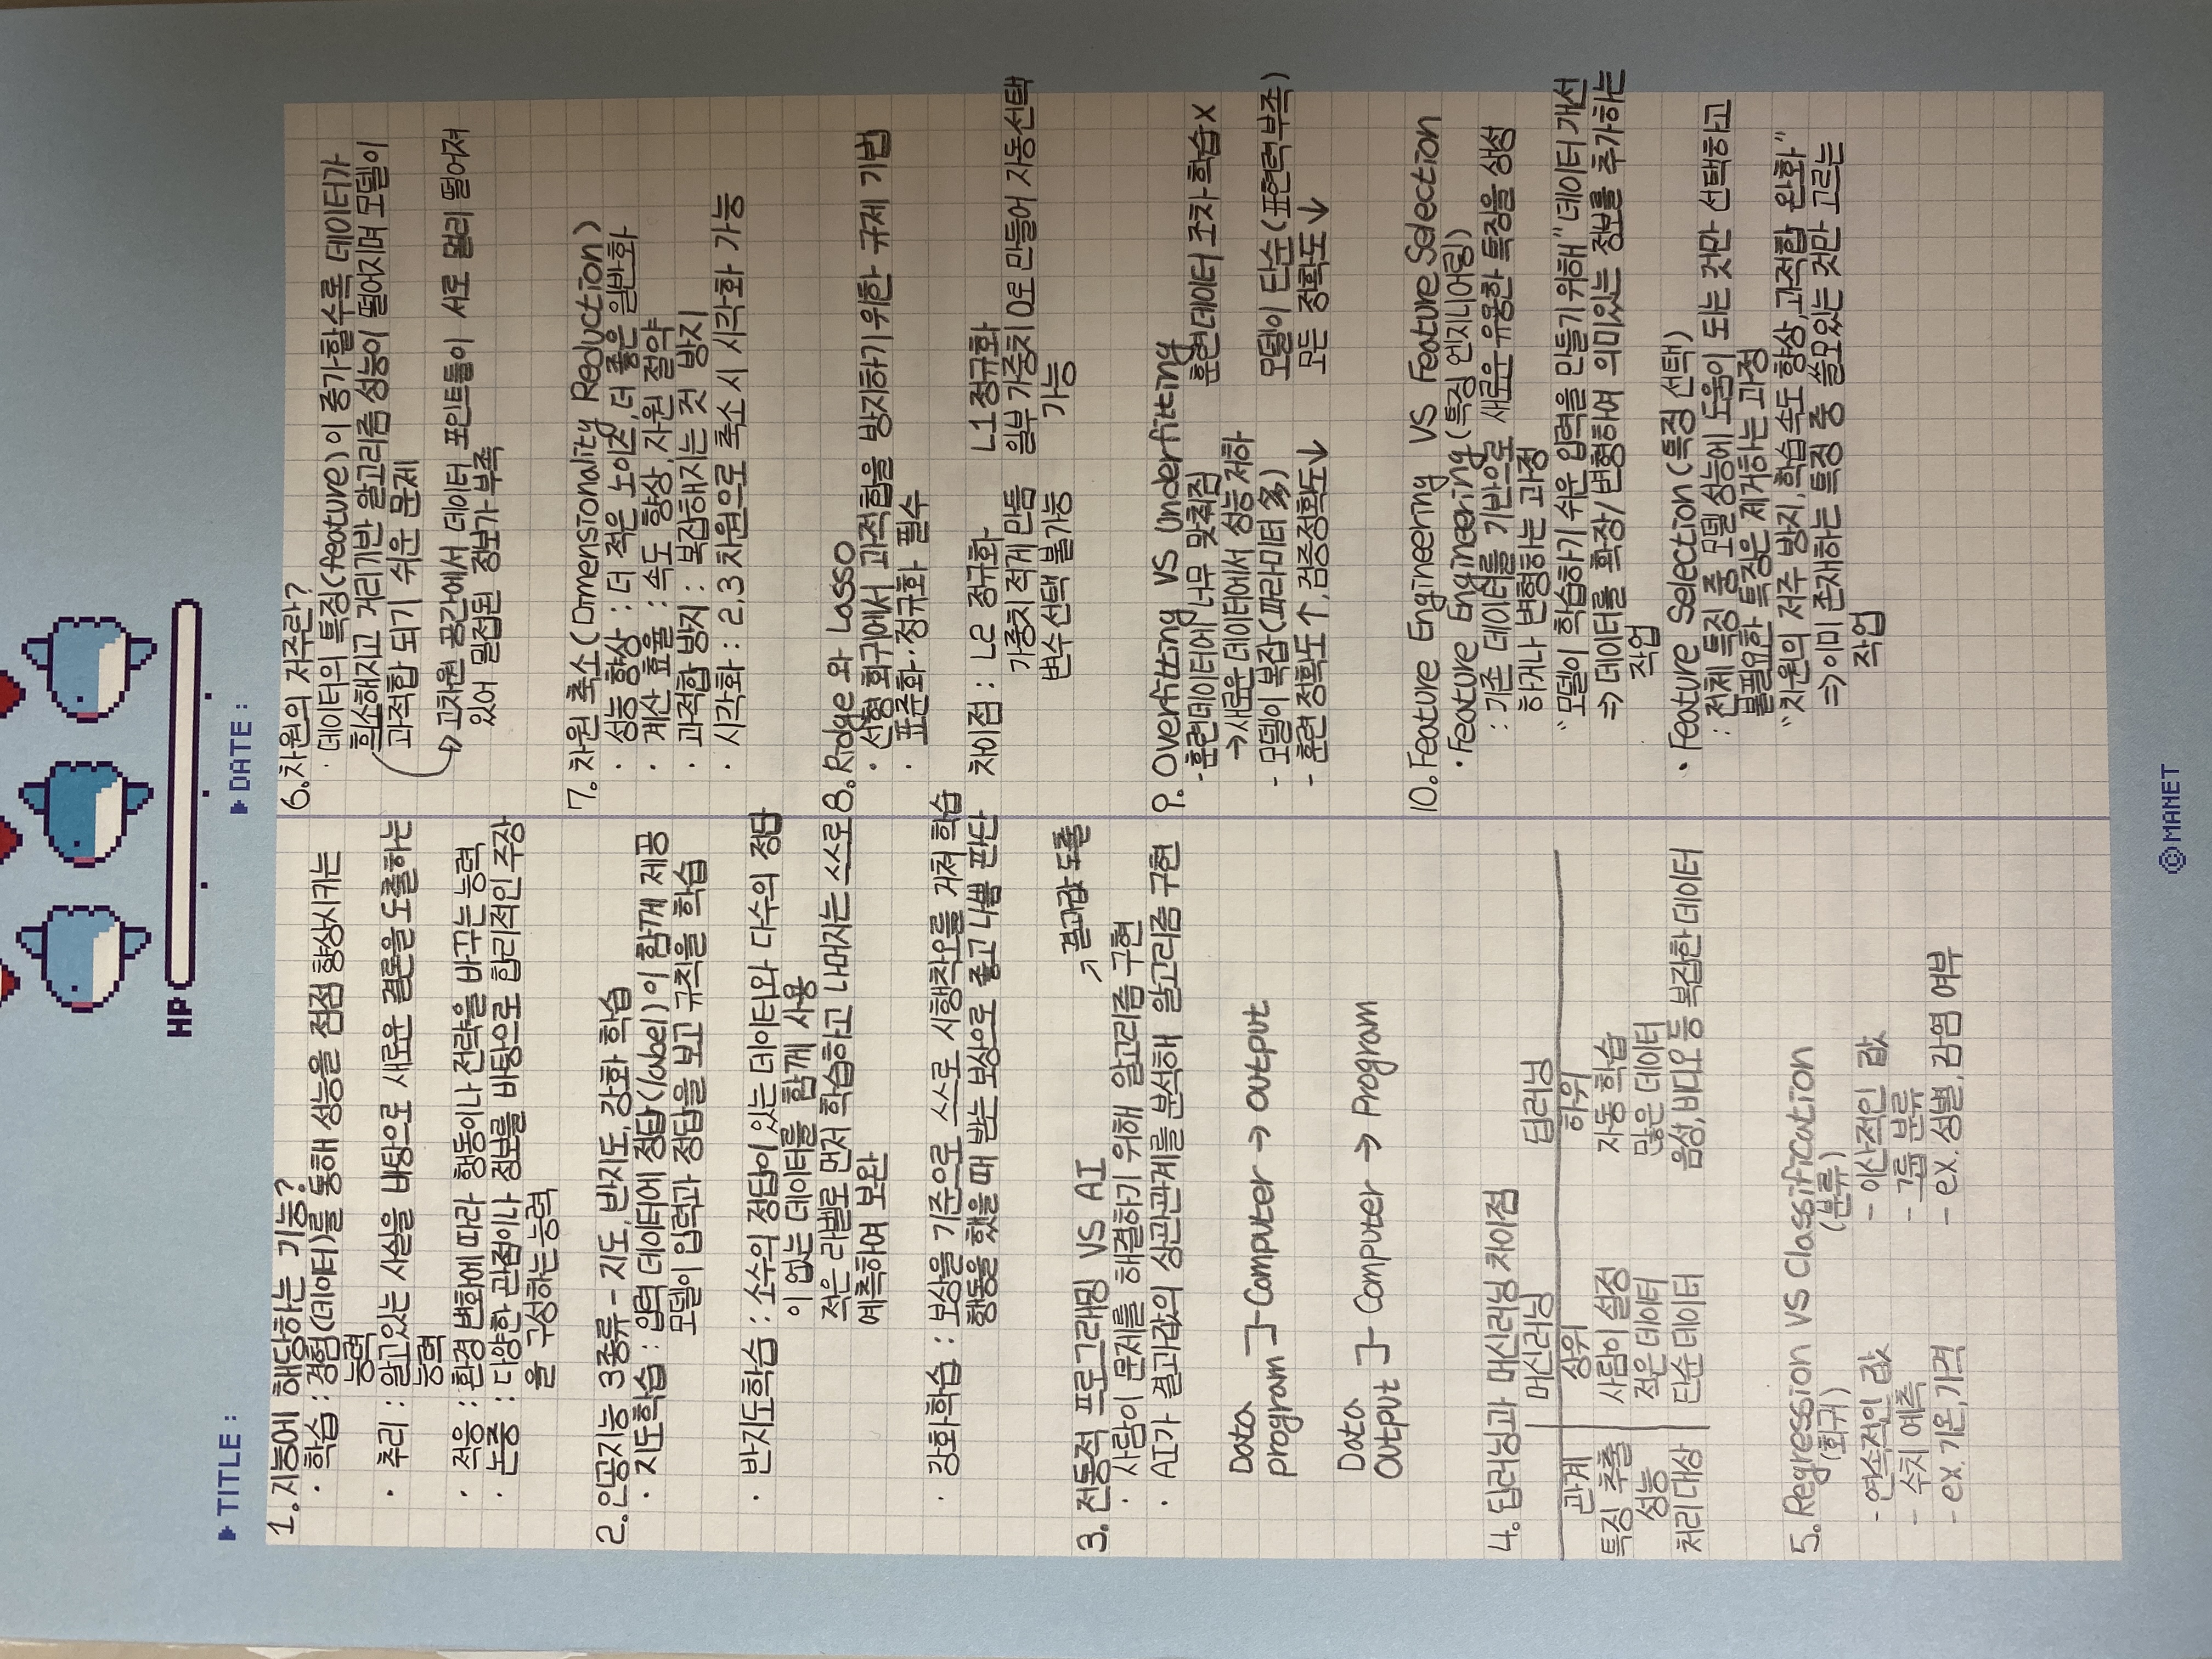 HP
TITLE :
DATE :
1. 지능에 해당하는 기능?
· 학습 : 경험(데이터)를 통해 성능을 점점 향상시키는
능력
· 추리 : 알고있는 사실을 바탕으로 새로운 결론을 도출하는
능력
· 적응 : 환경 변화에 따라 행동이나 전략을 바꾸는 능력
· 논증 : 다양한 관점이나 정보를 바탕으로 합리적인 주장
을 구성하는 능력
2. 인공지능 3종류 - 지도, 반지도, 강화 학습
· 지도학습 : 입력 데이터에 정답(label)이 함께 제공
모델이 입력과 정답을 보고 규칙을 학습
· 반지도학습 : 소수의 정답이 있는 데이터와 다수의 정답
이 없는 데이터를 함께 사용
적은 라벨로 먼저 학습하고 나머지는 스스로
예측하여 보완
· 강화학습 : 보상을 기준으로 스스로 시행착오를 거쳐 학습
행동을 했을 때 받는 보상으로 좋고 나쁨 판단
3. 전통적 프로그래밍 VS AI
↗ 결과값 도출
· 사람이 문제를 해결하기 위해 알고리즘 구현
· AI가 결과값의 상관관계를 분석해 알고리즘 구현
Data
program ]- Computer → Output
Data
Output ]- Computer → Program
4. 딥러닝과 머신러닝 차이점
머신러닝 딥러닝
관계 상위 하위
특징 추출 사람이 설정 자동 학습
성능 적은 데이터 많은 데이터
처리 대상 단순 데이터 음성, 비디오 등 복잡한 데이터
5. Regression VS Classification
(회귀) (분류)
- 연속적인 값 - 이산적인 값
- 수치 예측 - 그룹 분류
- ex. 기온, 가격 - ex. 성별, 감염 여부
6. 차원의 저주란?
· 데이터의 특징(feature)이 증가할수록 데이터가
희소해지고 거리기반 알고리즘 성능이 떨어지며 모델이
과적합 되기 쉬운 문제
→ 고차원 공간에서 데이터 포인트들이 서로 멀리 떨어져
있어 밀접된 정보가 부족
7. 차원 축소 (Dimensionality Reduction)
· 성능 향상 : 더 적은 노이즈, 더 좋은 일반화
· 계산 효율 : 속도 향상, 자원 절약
· 과적합 방지 : 복잡해지는 것 방지
· 시각화 : 2,3 차원으로 축소 시 시각화 가능
8. Ridge 와 Lasso
· 선형 회귀에서 과적합을 방지하기 위한 규제 기법
· 표준화·정규화 필수
차이점 : L2 정규화 L1 정규화
가중치 적게 만듦 일부 가중치 0로 만들어 자동 선택
변수 선택 불가능 가능
9. Overfitting VS Underfitting
- 훈련데이터에 너무 맞춰짐 훈련데이터 조차 학습 X
→ 새로운 데이터에서 성능 저하
- 모델이 복잡 (파라미터 多) 모델이 단순 (표현력 부족)
- 훈련 정확도 ↑, 검증정확도 ↓ 모든 정확도 ↓
10. Feature Engineering VS Feature Selection
· Feature Engineering (특징 엔지니어링)
: 기존 데이터를 기반으로 새로운 유용한 특징을 생성
하거나 변형하는 과정
"모델이 학습하기 쉬운 입력을 만들기 위해" 데이터 개선
⇒ 데이터를 확장/변형하여 의미있는 정보를 추가하는
작업
· Feature Selection (특징 선택)
: 전체 특징 중 모델 성능에 도움이 되는 것만 선택하고
불필요한 특징은 제거하는 과정
"차원의 저주 방지, 학습 속도 향상, 과적합 완화"
⇒ 이미 존재하는 특징 중 쓸모있는 것만 고르는
작업
© MANET